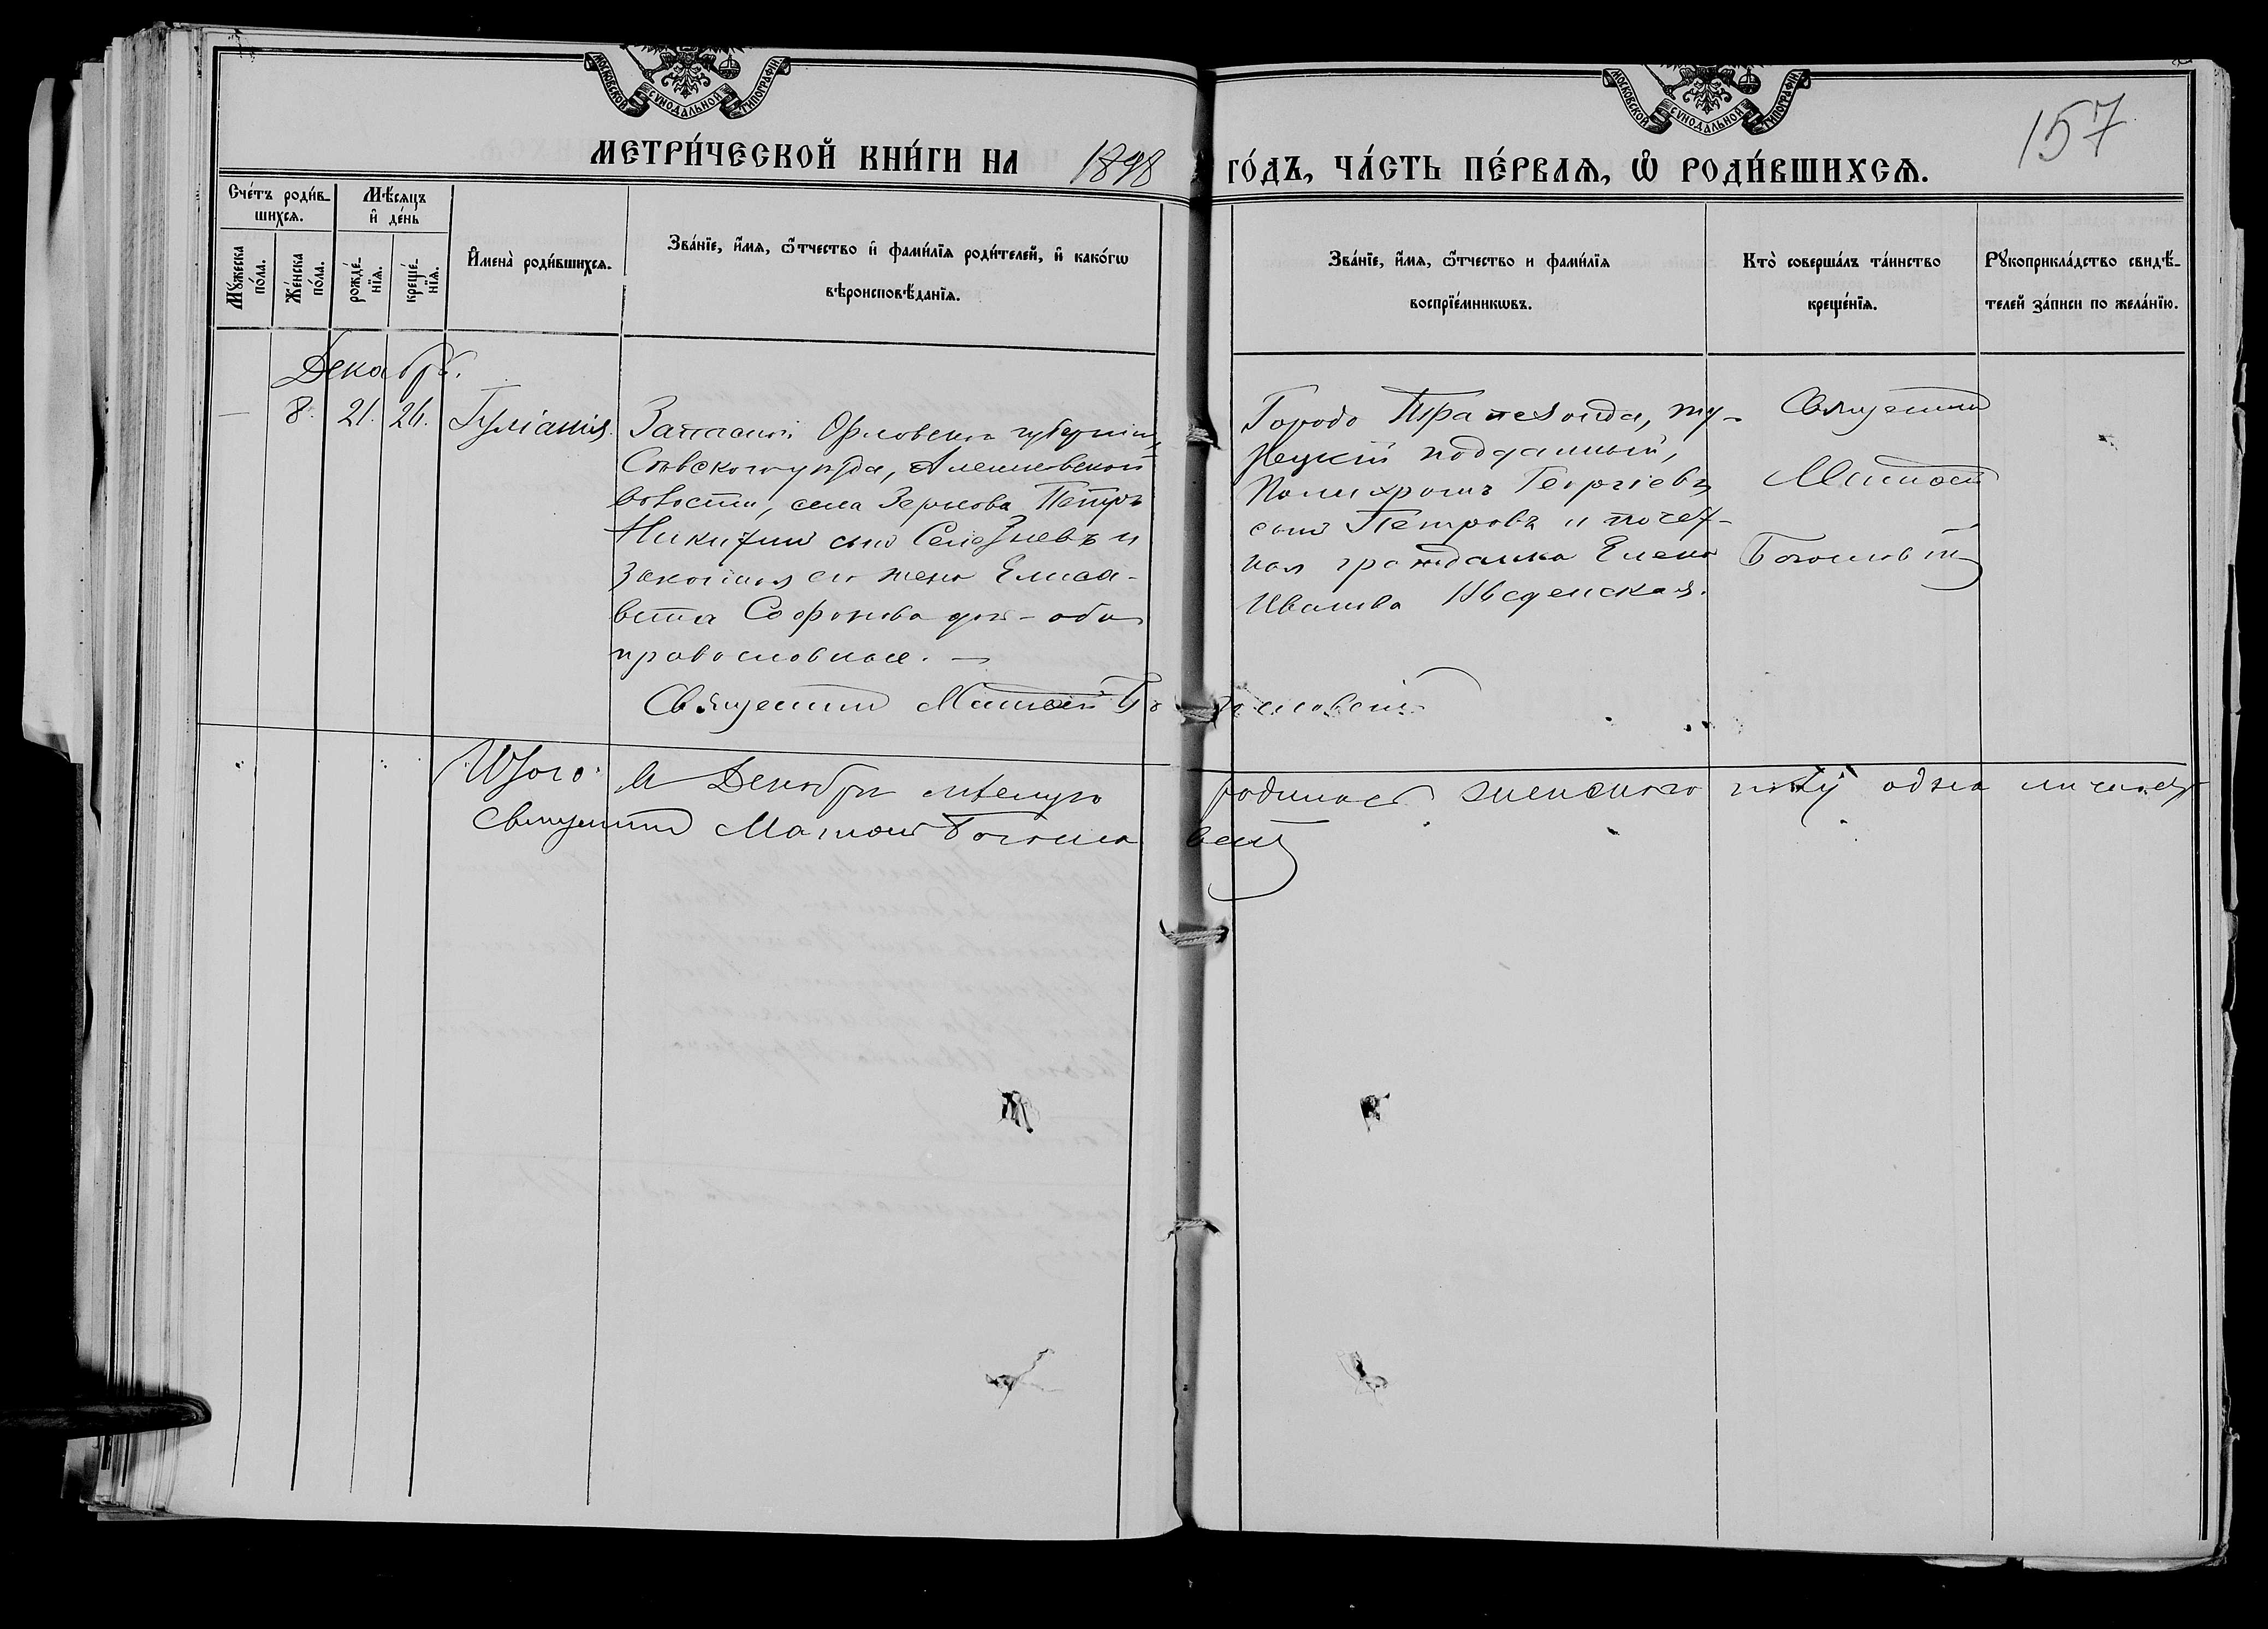 МОСКОВСКОЙ СѴНОДАЛЬНОЙ ТИПОГРАФІИ
МОСКОВСКОЙ СѴНОДАЛЬНОЙ ТИПОГРАФІИ
157
МЕТРИ́ЧЕСКОЙ КНИ́ГИ НА 1898 ГО́ДЪ, ЧА́СТЬ ПЕ́РВАѦ, Ѡ҆ РОДИ́ВШИХСѦ.
Сче́тъ роди́в-
шихсѧ.
Мꙋ́жеска
по́ла.
Же́нска
по́ла.
Мѣ́сѧцъ
и҆ де́нь
рожде́-
нїѧ.
креще́-
нїѧ.
И҆мена̀ роди́вшихсѧ.
Зва́нїе, и҆́мѧ, ѻ҆́тчество и҆ фами́лїѧ роди́телей, и҆ како́гѡ
вѣроисповѣ́данїѧ.
Зва́нїе, и҆́мѧ, ѻ҆́тчество и фами́лїѧ
воспрїе́мникѡвъ.
Кто̀ соверша́лъ та́инство
креще́нїѧ.
Рꙋкоприкла́дство свидѣ́-
телей за́писи по жела́нїю.
Декабрь.
— 8. 21. 26. Іуліанія.
Запасной Орловской губерніи,
Сѣвскаго уѣзда, Алешковской
волости, села Зернова Петръ
Никитинъ сынъ Селезневъ и
законная его жена Елиса-
вета Софонова доч - оба
православные. —
Городо Трапезонда, ту-
рецкій подданный,
Полихронъ Георгіевъ
сынъ Петровъ и почет-
ная гражданка Елена
Иванова Введенская.
Священникъ
Матѳей
Богословскій
Священникъ Матѳей Богословскій
Итого въ Декабрѣ мѣсяцѣ родилась женскаго полу одна
Священникъ Матѳей Богословскій